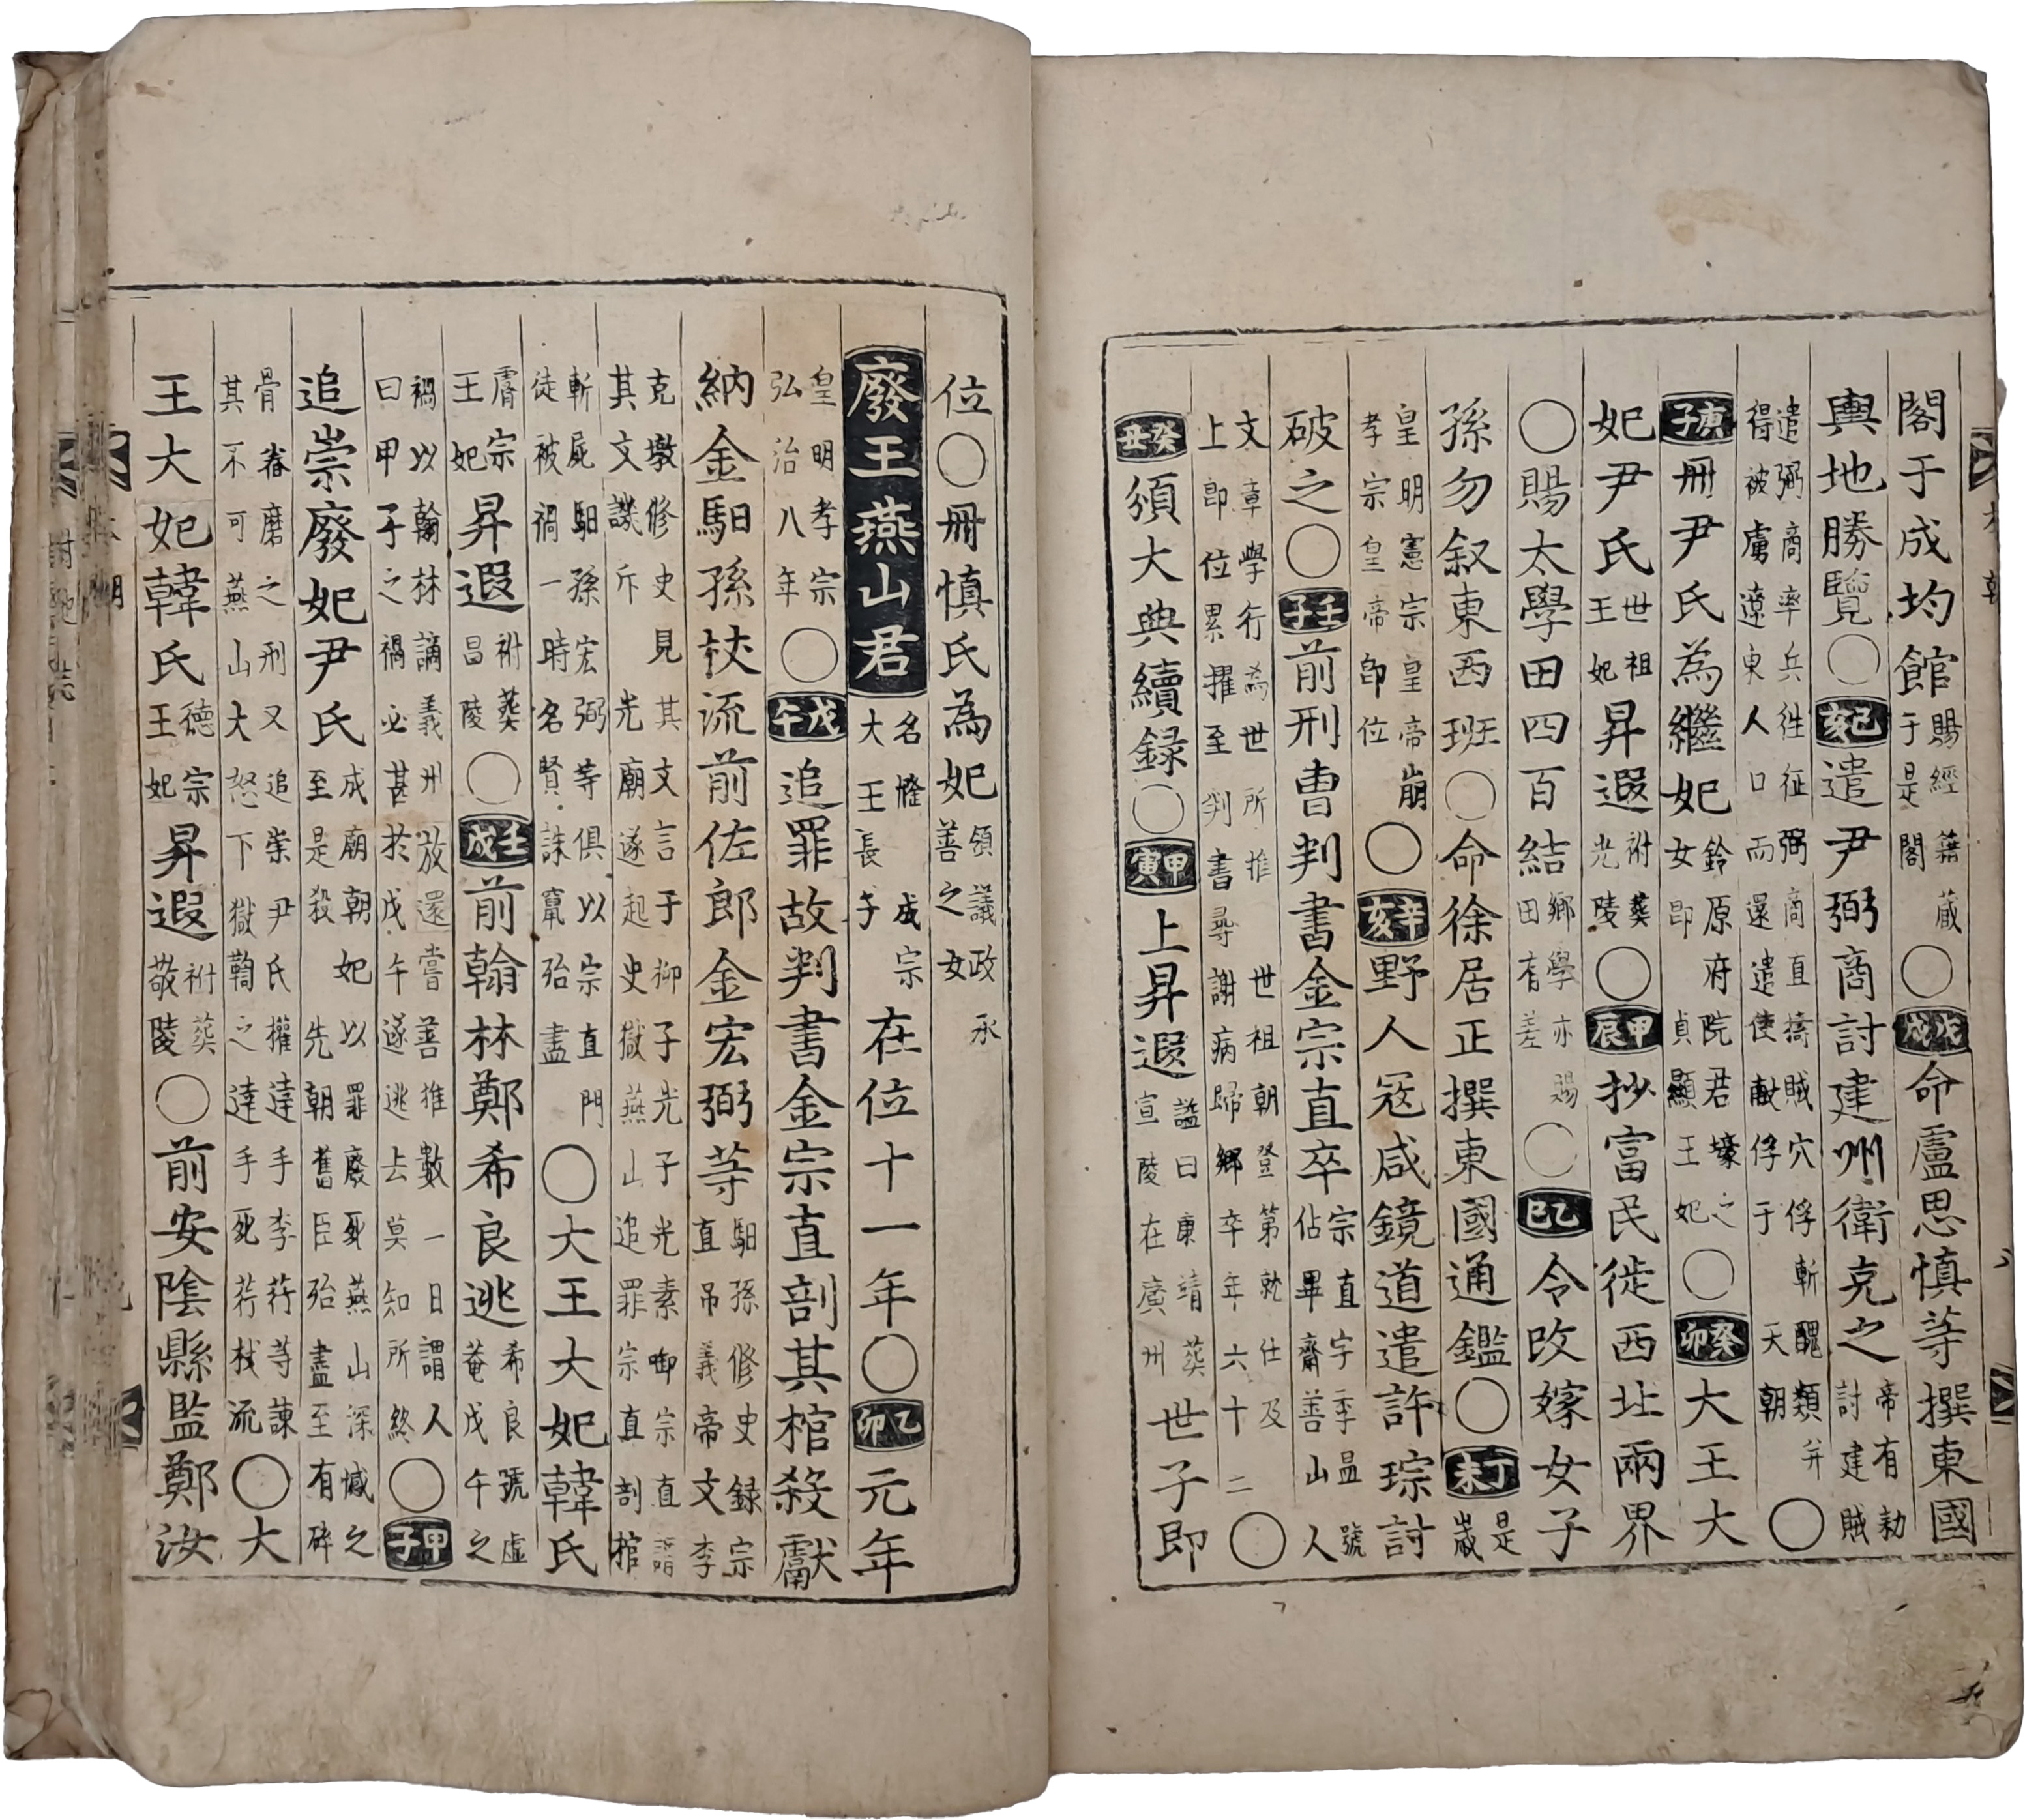 閣于成均館賜經籍藏于是閣○戊戌命盧思慎等撰東國
輿地勝覽○己亥遣尹弼商討建州衛克之帝有勑討建賊
遣弼商率兵徃征弼商直擣賊穴俘斬醜類并得被虜遼東人口而還遣使獻俘于天朝○
庚子冊尹氏為繼妃鈴原府院君壕之女即貞顯王妃○癸卯大王大
妃尹氏世祖王妃昇遐祔葬光陵○甲辰抄富民徙西北兩界
○賜太學田四百結鄉學亦賜田有差○乙巳令改嫁女子
孫勿叙東西班○命徐居正撰東國通鑑○丁未是歲
皇明憲宗皇帝崩孝宗皇帝即位○辛亥野人寇咸鏡道遣許琮討
破之○壬子前刑曹判書金宗直卒宗直字季昷號佔畢齋善山人
文章學行為世所推世祖朝登第就仕及上即位累擢至判書尋謝病歸鄉卒年六十二○
癸丑頒大典續錄○甲寅上昇遐謚曰康靖葬宣陵在廣州世子即
位○冊慎氏為妃領議政承善之女
廢王燕山君名㦕成宗大王長子在位十一年○乙卯元年
皇明孝宗弘治八年○戊午追罪故判書金宗直剖其棺殺獻
納金馹孫杖流前佐郎金宏弼等馹孫修史錄宗直吊義帝文李
克墩修史見其文言于柳子光子光素啣宗直謟其文譏斥光廟遂起史獄燕山追罪宗直剖棺
斬屍馹孫宏弼等俱以宗直門徒被禍一時名賢誅竄殆盡○大王大妃韓氏
睿宗王妃昇遐祔葬昌陵○壬戌前翰林鄭希良逃希良號虛菴戊午之
禍以翰林謫義州放還嘗善推數一日謂人曰甲子之禍必甚於戊午遂逃去莫知所終○甲子
追崇廢妃尹氏成廟朝妃以罪廢死燕山深憾之至是殺先朝舊臣殆盡至有碎
骨舂磨之刑又追崇尹氏權達手李荇等諫其不可燕山大怒下獄鞫之達手死荇杖流○大
王大妃韓氏德宗王妃昇遐祔葬敬陵○前安陰縣監鄭汝